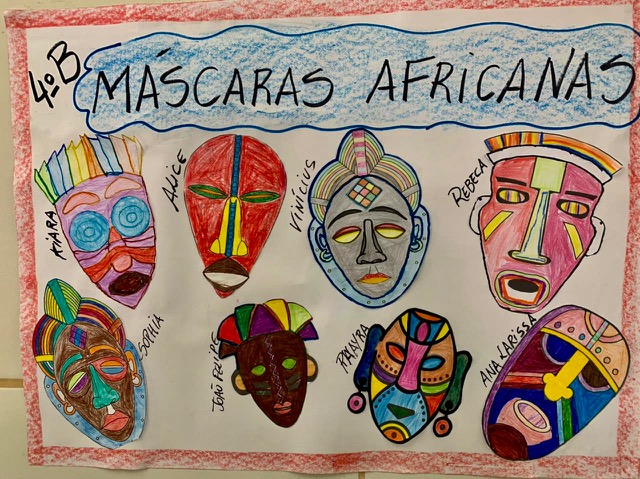 4º B
MÁSCARAS AFRICANAS
KIARA
ALICE
VINICIUS
REBECA
SOPHIA
JOÃO FELIPE
ANA LARISSA